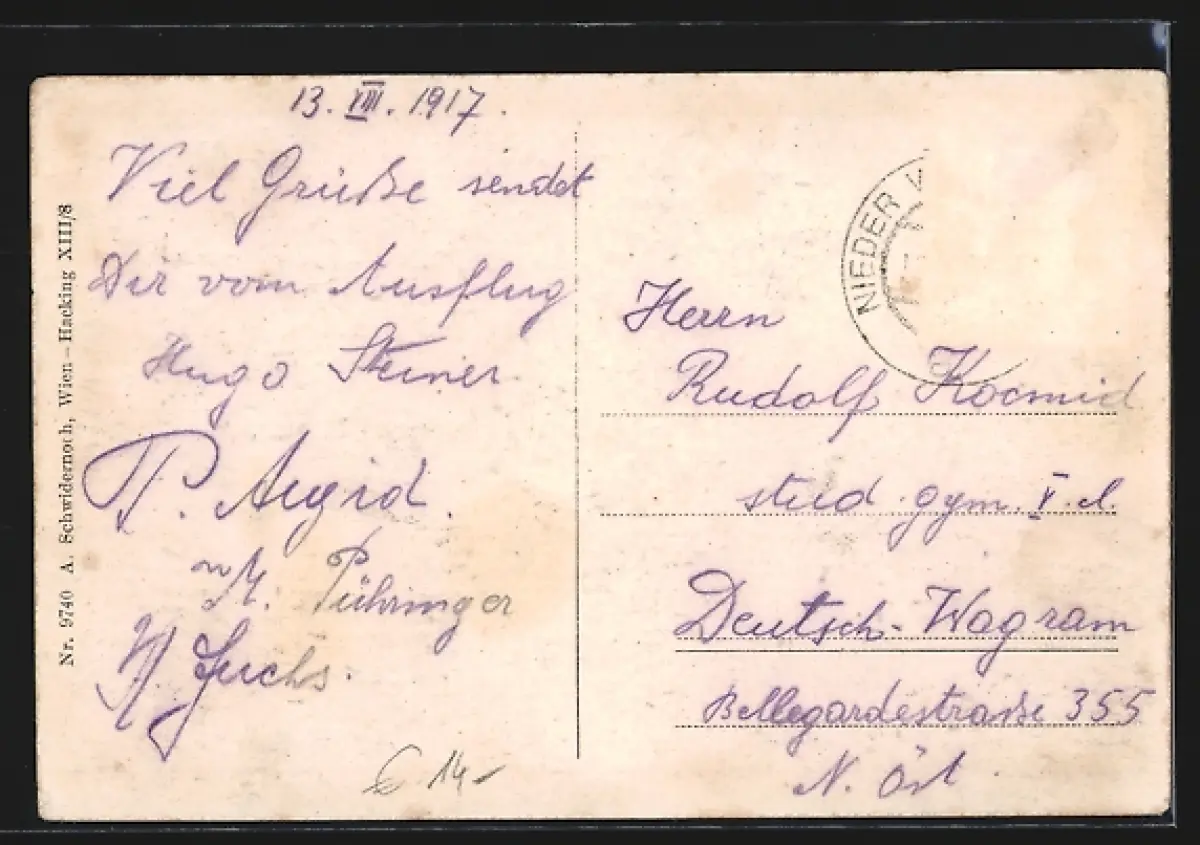 13. VIII. 1917.
Viel Grüße sendet
Dir vom Ausflug
Hugo Steiner
P. Aegid.
M. Pühringer
Fuchs.
€ 14,-
Nr. 9740 A. Schwidernoch, Wien-Hacking XIII/8
NIEDER
Herrn
Rudolf Kocmid
stud. gym. V. cl.
Deutsch-Wagram
Bellegardestraße 355
N. Öst